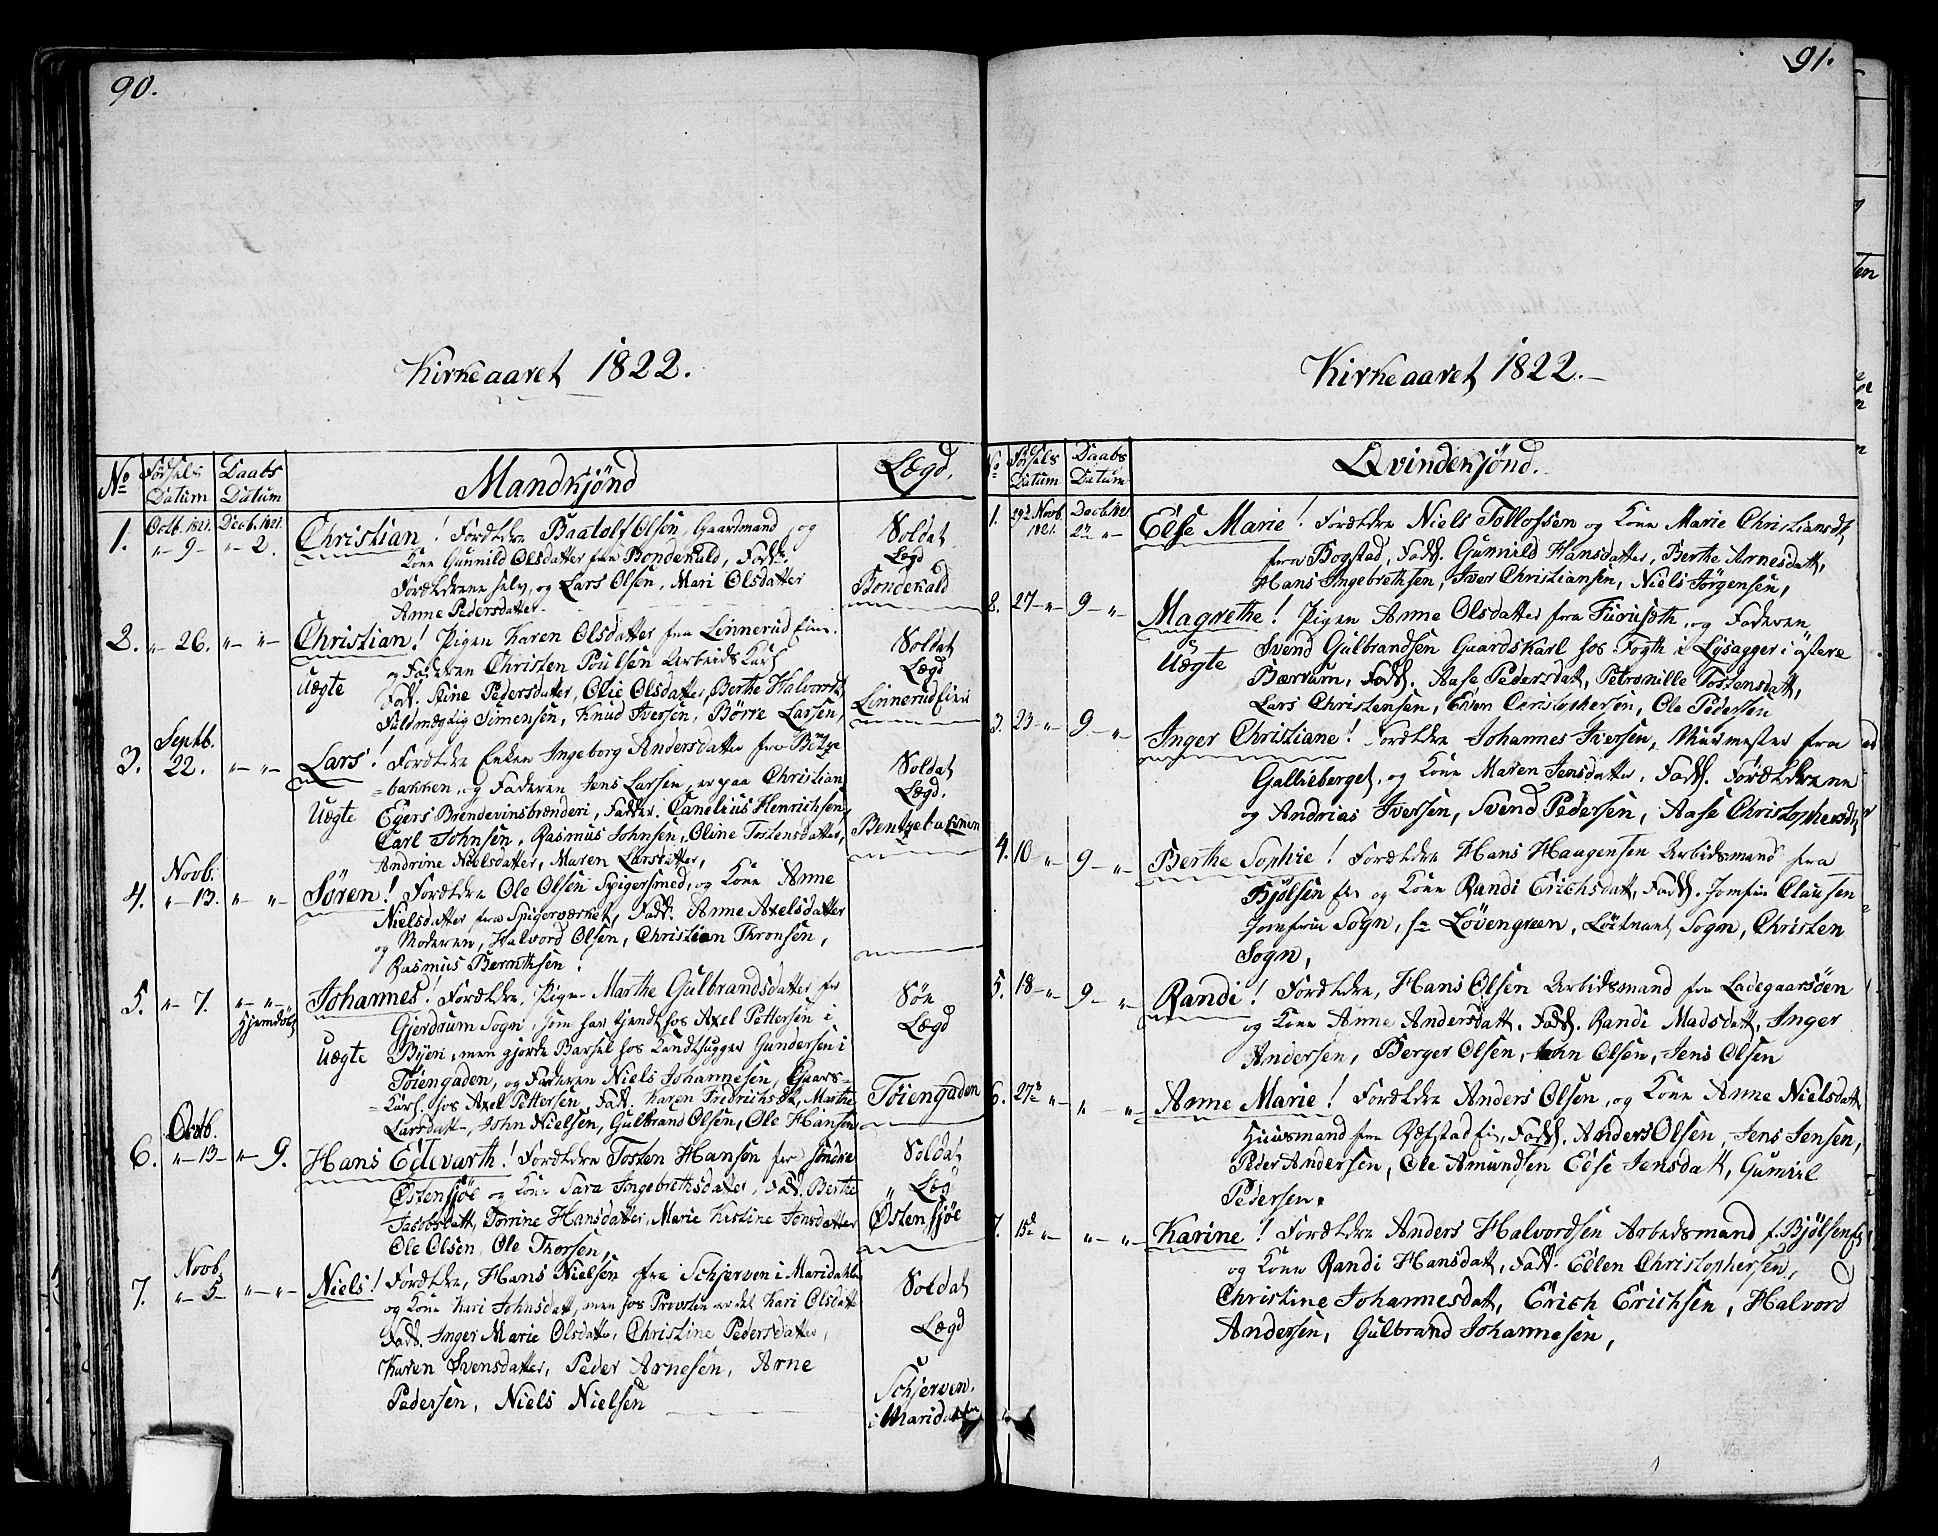 90.
Kirkeaaret 1822.
No Førsels Datum Daabs Datum Mandkjønd Lægd.
1. Octb. 1821. " 9 - Decb. 1821. " 2. Christian! Forældre Baatolf Olsen, Gaardmand, og
Kone Gunnild Olsdatter fra Bondekald, Fadd.
Forældrene selv, og Lars Olsen, Mari Olsdatter
Anne Pedersdatter
Soldat
Lægd
Bondekald
2. " 26. " " Christian! Pigen Karen Olsdatter fra Linnerud Eier.
og Faderen Christen Poulsen Arbeids Karl
Uægte Fadd. Stine Pedersdatter, Olie Olsdatter, Berthe Halvorsdt,
Fuldmægtig Simensen, Knud Iversen, Børre Larsen,
Soldat
Lægd
Linnerud Eier
3. Septb. 22. " " Lars! Forældre Enken Ingeborg Andersdatter fra Bentze
bakken, og Faderen Jens Larsen, er paa Christian
Uægte Egers Brendevinsbrænderi, Fadder. Canelius Henrichsen,
Carl Johnsen, Rasmus Johnsen, Oline Tostensdatter,
Andrine Nielsdatter, Maren Larsdatter,
Soldat
Lægd.
Bentzebakken
4. Novb. " 13. " " Søren! Forældre Ole Olsen Spigersmed, og Kone Anne
Nielsdatter fra Spigerværket, Fadd. Anne Axelsdatter
og Moderen, Halvord Olsen, Christian Thronsen,
Rasmus Bernthsen.
5. " 7. " " Hjemdøbt Johannes! Forældre, Pigen Marthe Gulbrandsdatter fra
Gjerdrum Sogn, som har tjendt hos Axel Pettersen i
Uægte Byen, men gjorde Barsel hos Gundersen i
Tøiengaden, og Faderen Niels Johannesen, Gaards
Karl hos Axel Pettersen, Fad. Karen Fredrichsdt, Marthe
Larsdatt, John Nielsen, Gulbrand Olsen, Ole Hansen
Søe
Lægd
Tøiengaden
6. Octb. " 13 - " 9. Hans Edevarth! Forældre Tosten Hansen fra søndre
Østensjøe og Kone Sara Ingebrethsdatter, Fad. Berthe
Jacobsdatt, Torrine Hansdatter, Marie Kistine Jonsdatter
Ole Olsen, Ole Thorsen,
Soldat
" Læg
Østensjøe
7. Novb. " 5 - " " Niels! Forældre, Hans Nielsen fra Schjerven i Maridahlen
og Kone Kari Johnsdatt, men hos Præsten er det Kari Olsdatt
Fadd. Inger Marie Olsdatter, Christine Pedersdatter,
Karen Svensdatter, Peder Arnesen, Arne
Pedersen, Niels Nielsen
Soldat
Lægd
Schjerven
i Maridahlen
91.
Kirkeaaret 1822.
No Førsels Datum Daabs Datum Qvindekjønd.
1. 29d Novb. 1821. Decb. 1821 2d " Else Marie! Forældre Niels Tollofsen og Kone Marie Christiansdt,
fra Bogstad, Fadd. Gunnild Hansdatter, Berthe Arnesdatt,
Hans Ingebrethsen, Iver Christiansen, Niels Jørgensen,
8. 27 - " 9 - " Magrethe! Pigen Anne Olsdatter fra Furuseth, og Faderen
Svend Gulbrandsen Gaardskarl hos Fogth i Lysagger i østere
Uægte Bærrum, Fadd. Aase Pedersdat, Petronille Tostensdatt,
Lars Christensen, Even Christophersen, Ole Pedersen
3. 23 - " 9 - " Inger Christiane! Forældre Johannes Iversen, Murmester fra
Gallieberget, og Kone Maren Jensdatter, Fadd. Forældrerne
og Andrias Iversen, Svend Pedersen, Aase Christophersdt,
4. 10 " 9 - " Berthe Sophie! Forældre Hans Haagensen Arbidsmand fra
Bjølsen Eie og Kone Randi Erichsdatt, Fadd. Jomfru Clausen
Jomfru Sogn, Løvengreen, Løitnant Sogn, Christen
Sogn,
5. 18 - " 9 - " Randi! Forældre, Hans Olsen Arbidsmand fra Ladegaarsøen
og Kone Anne Andersdatt, Fadd. Randi Madsdatt, Inger
Andersen, Berger Olsen, John Olsen, Jens Olsen
6. 27d " " " Anne Marie! Forældre Anders Olsen, og Kone Anne Nielsdatt
Huusmand fra Refstad Ei, Fadd. Anders Olsen, Jens Jensen,
Peder Andersen, Ole Amundsen Edse Jensdatt, Gunnil
Pedersen.
7. 15d " " " Karine! Forældre Anders Halvordsen Arbedsmand f. Bjølsen Ei
og Kone Randi Hansdatt, Fadd. Edlen Christophersen,
Christine Johannesdatt, Erich Erichsen, Halvord
Andersen, Gulbrand Johannesen,